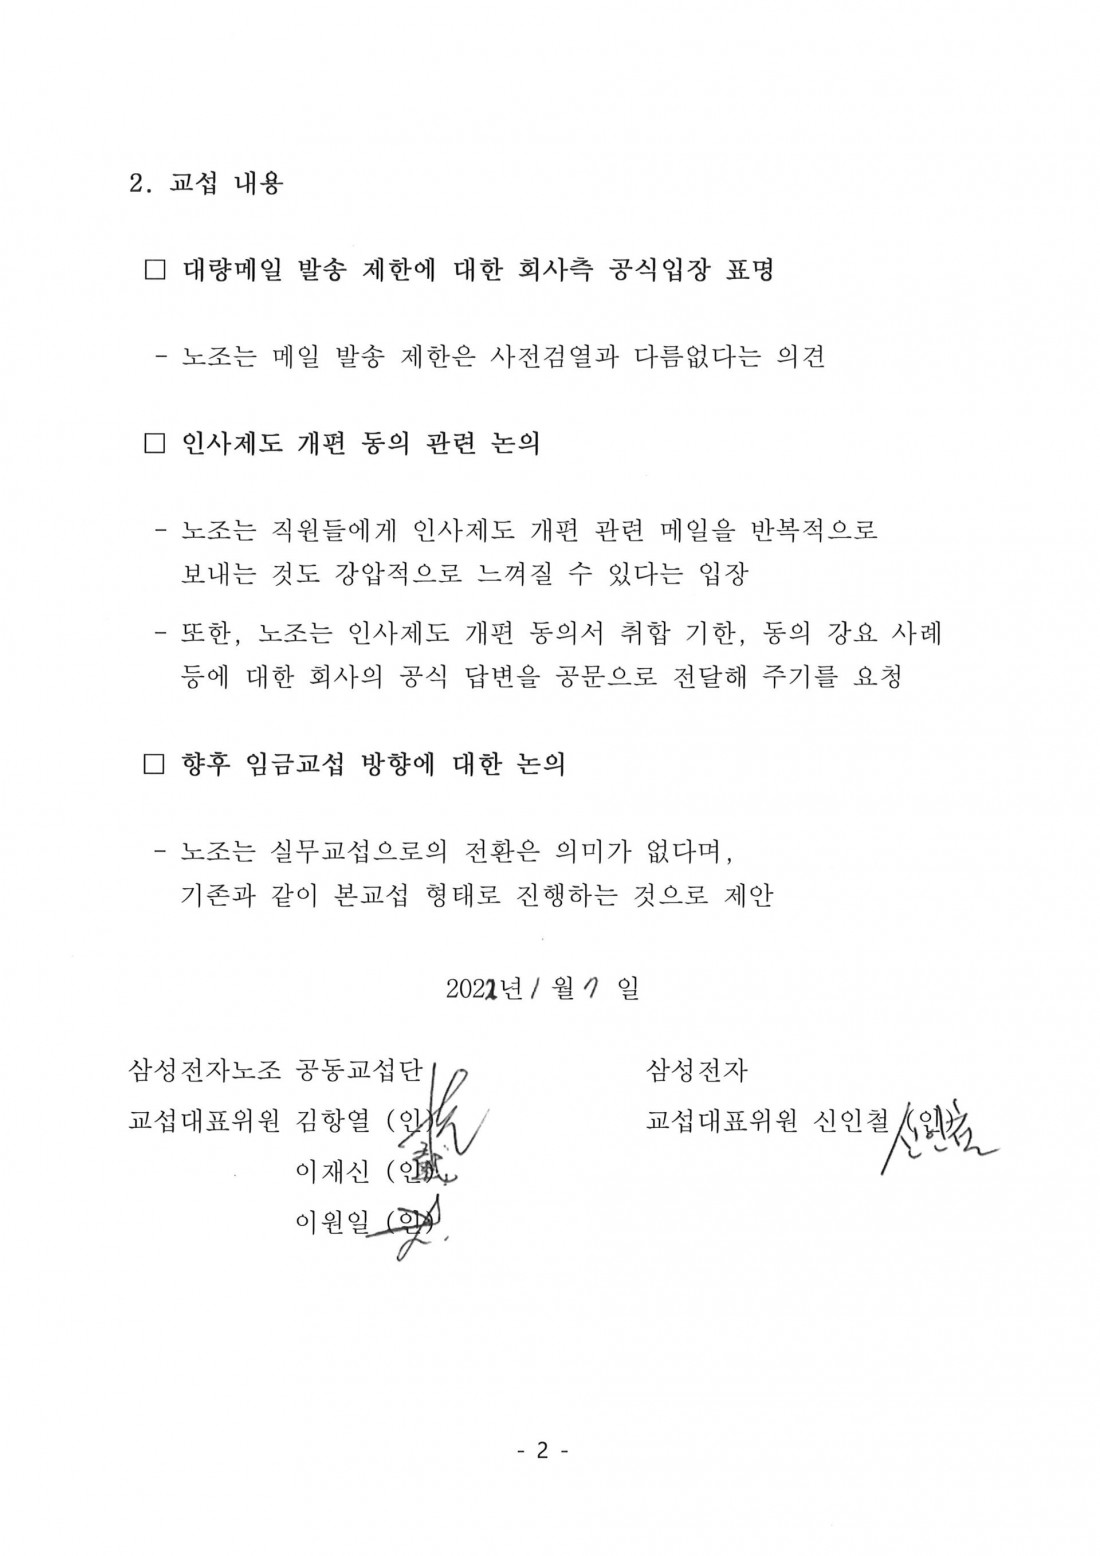 2. 교섭 내용
□ 대량메일 발송 제한에 대한 회사측 공식입장 표명
- 노조는 메일 발송 제한은 사전검열과 다름없다는 의견
□ 인사제도 개편 동의 관련 논의
- 노조는 직원들에게 인사제도 개편 관련 메일을 반복적으로
보내는 것도 강압적으로 느껴질 수 있다는 입장
- 또한, 노조는 인사제도 개편 동의서 취합 기한, 동의 강요 사례
등에 대한 회사의 공식 답변을 공문으로 전달해 주기를 요청
□ 향후 임금교섭 방향에 대한 논의
- 노조는 실무교섭으로의 전환은 의미가 없다며,
기존과 같이 본교섭 형태로 진행하는 것으로 제안
2022년 1월 7일
삼성전자노조 공동교섭단
삼성전자
교섭대표위원 김항열 (인)
교섭대표위원 신인철 (인) 신인철
이재신 (인)
이원일 (인)
- 2 -